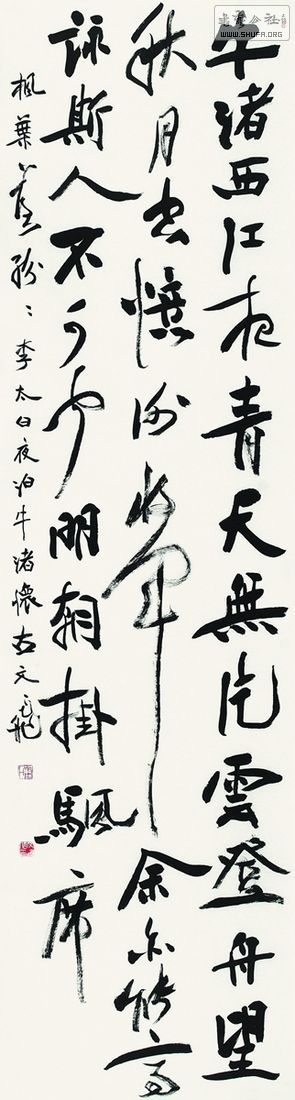 牛渚西江夜青天無片雲登舟望
秋月空憶謝將軍余亦能高
詠斯人不可聞明朝掛颿席
楓葉落紛〻李太白夜泊牛渚懷古
WWW.SHUFA.ORG